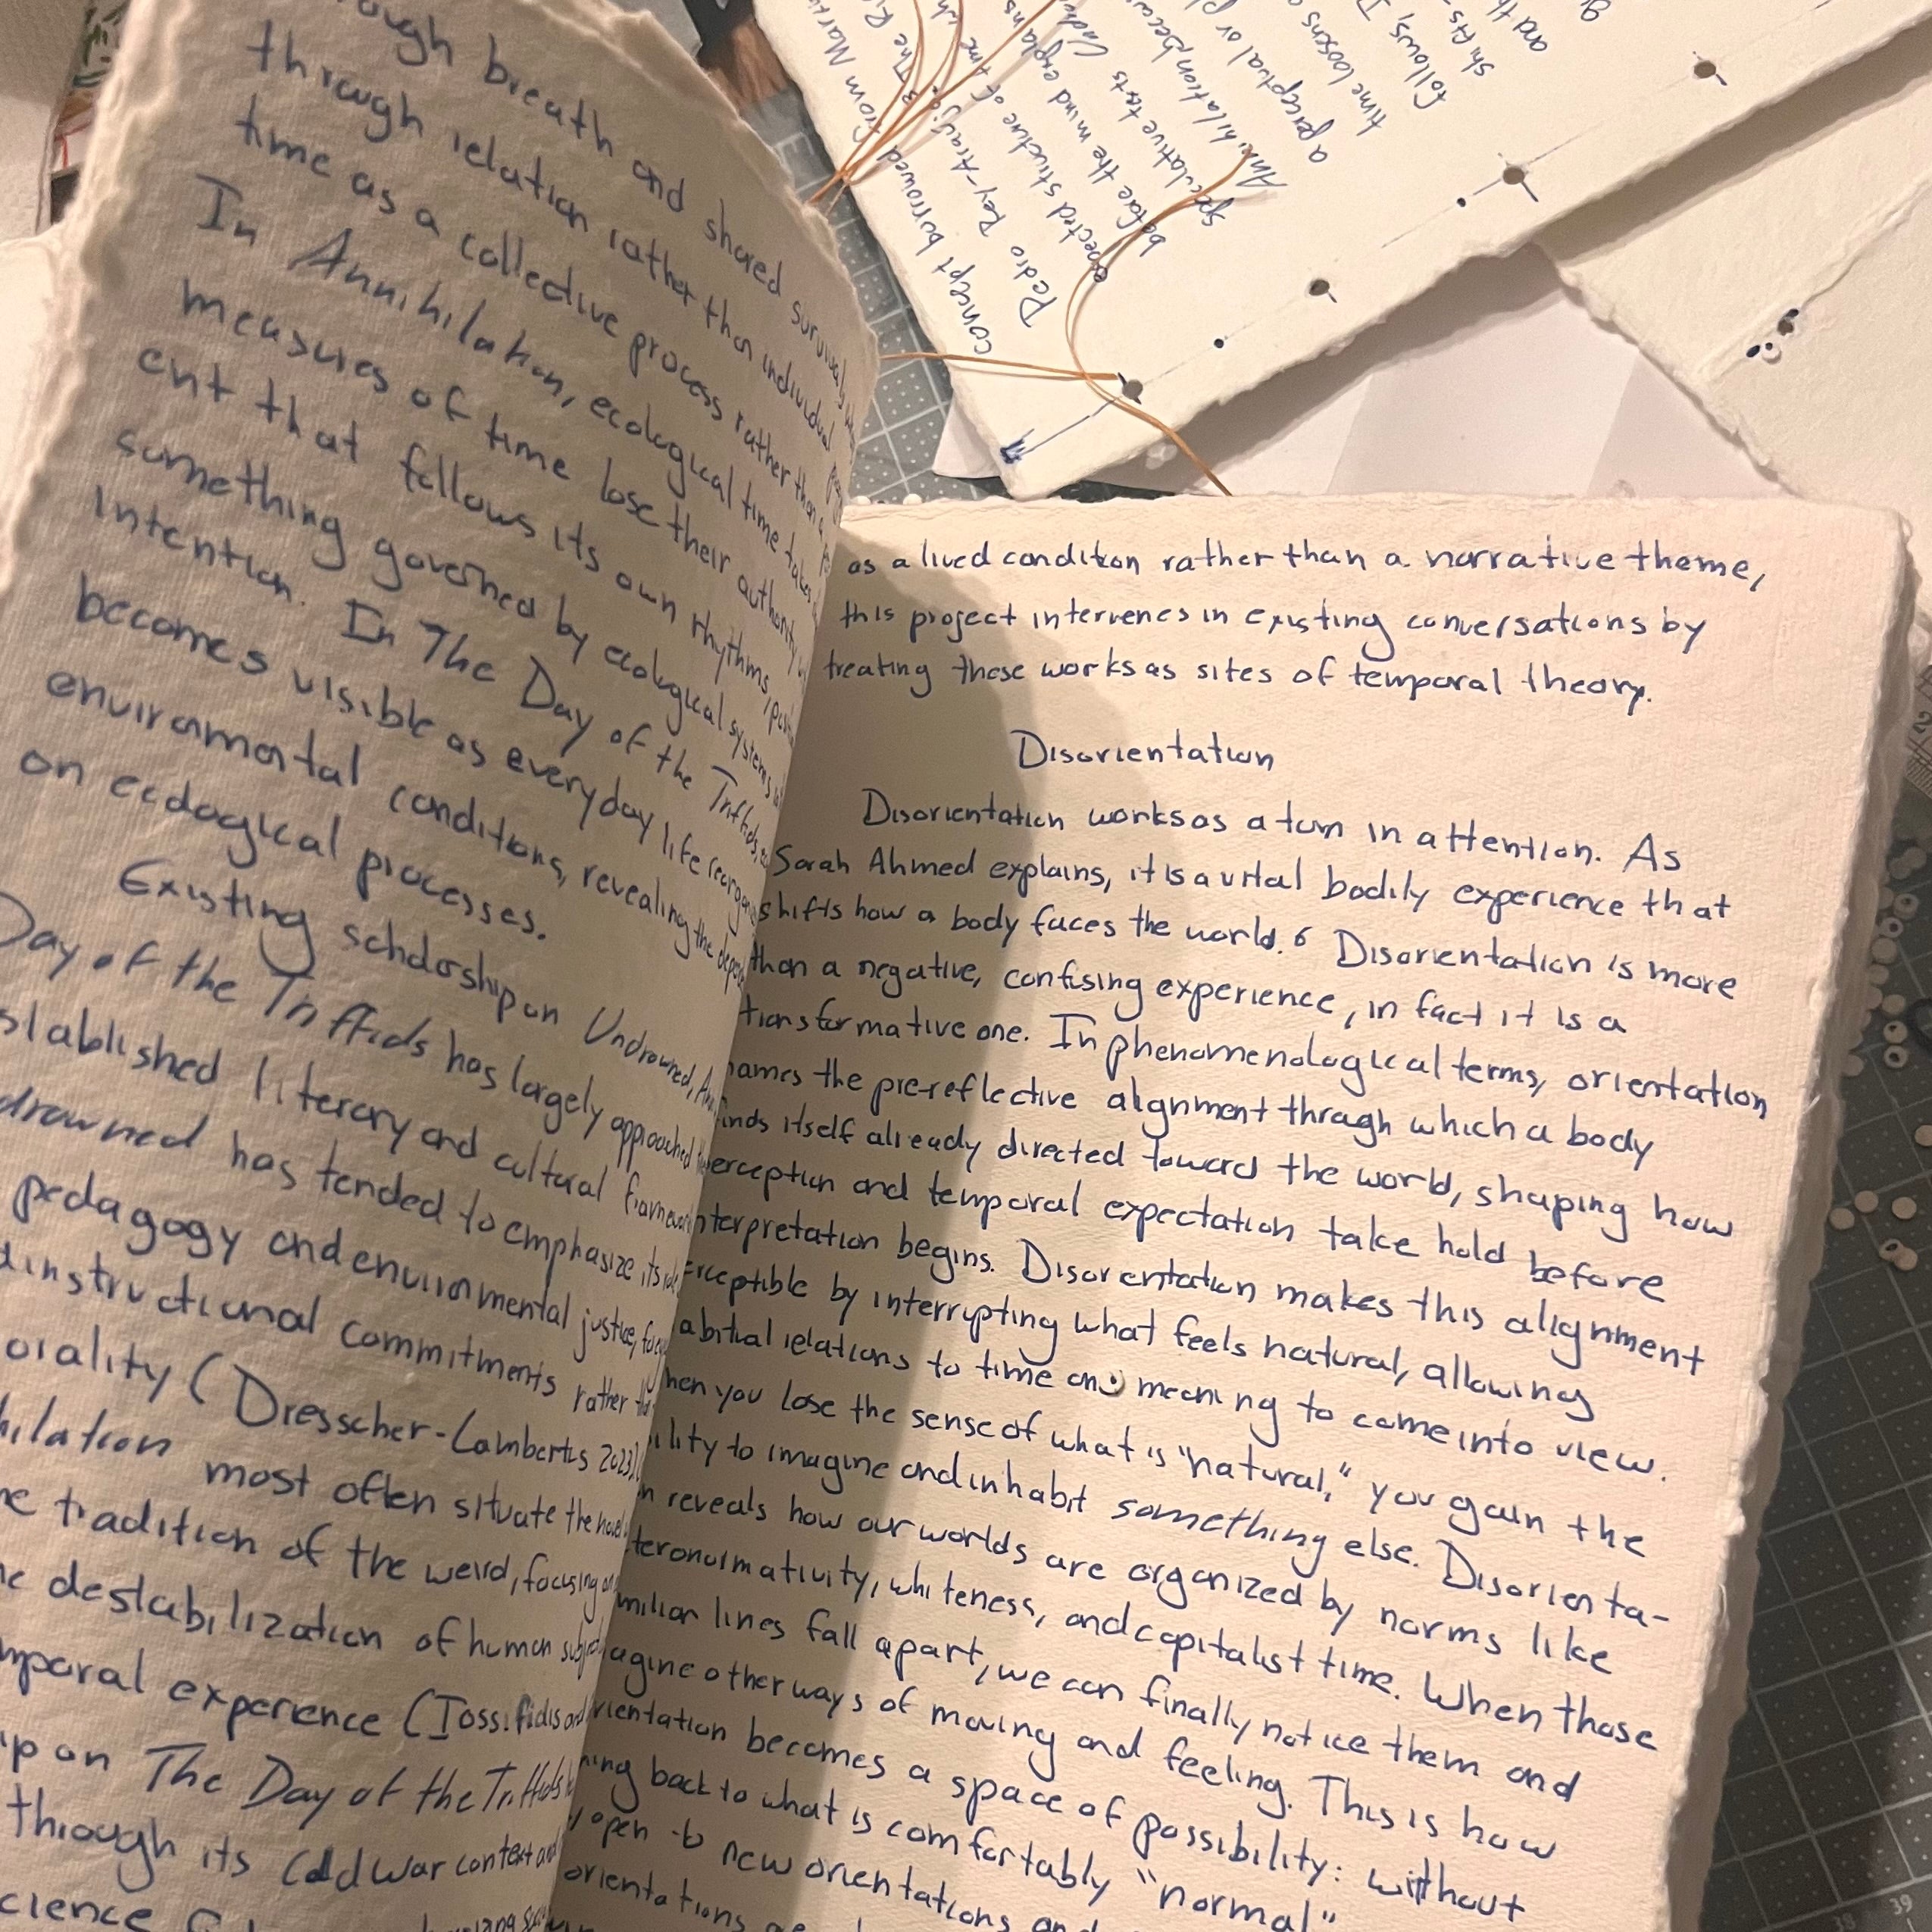 ough breath and shared survival
through relation rather than individual
time as a collective process rather than a
In Annihilation, ecological time takes
measures of time lose their authority
ent that follows its own rhythms,
something governed by ecological systems
intention. In The Day of the Triffids,
becomes visible as everyday life reorgan
environmental conditions, revealing the depen
on ecological processes.
Existing scholarship on Undrowned, An
Day of the Triffids has largely approached
stablished literary and cultural framewor
drowned has tended to emphasize its role
pedagogy and environmental justice,
instructional commitments rather
orality (Dresscher-Lambertus 2023)
hilation most often situate the novel
e tradition of the weird, focusing on
e destabilization of human subj
mporal experience (Iossifidis and
ip on The Day of the Triffids
through its Cold War context and
cience
as a lived condition rather than a narrative theme,
this project intervenes in existing conversations by
treating these works as sites of temporal theory.
Disorientation
Disorientation works as a turn in attention. As
Sarah Ahmed explains, it is a vital bodily experience that
shifts how a body faces the world.⁶ Disorientation is more
than a negative, confusing experience, in fact it is a
transformative one. In phenomenological terms, orientation
names the pre-reflective alignment through which a body
inds itself already directed toward the world, shaping how
erception and temporal expectation take hold before
nterpretation begins. Disorientation makes this alignment
erceptible by interrupting what feels natural, allowing
abitual relations to time and meaning to come into view.
hen you lose the sense of what is "natural," you gain the
ility to imagine and inhabit something else. Disorienta-
n reveals how our worlds are organized by norms like
teronormativity, whiteness, and capitalist time. When those
miliar lines fall apart, we can finally notice them and
agine other ways of moving and feeling. This is how
rientation becomes a space of possibility: without
ning back to what is comfortably "normal"
y open to new orientations and
orientations
concept borrowed from Mart
Pedro Rey-Araujo.³ The R
expected structure of time wh
before the mind explains
speculative texts
Annihilation becom
a perceptual or p
time loosens
follows, I
shifts
and th
39